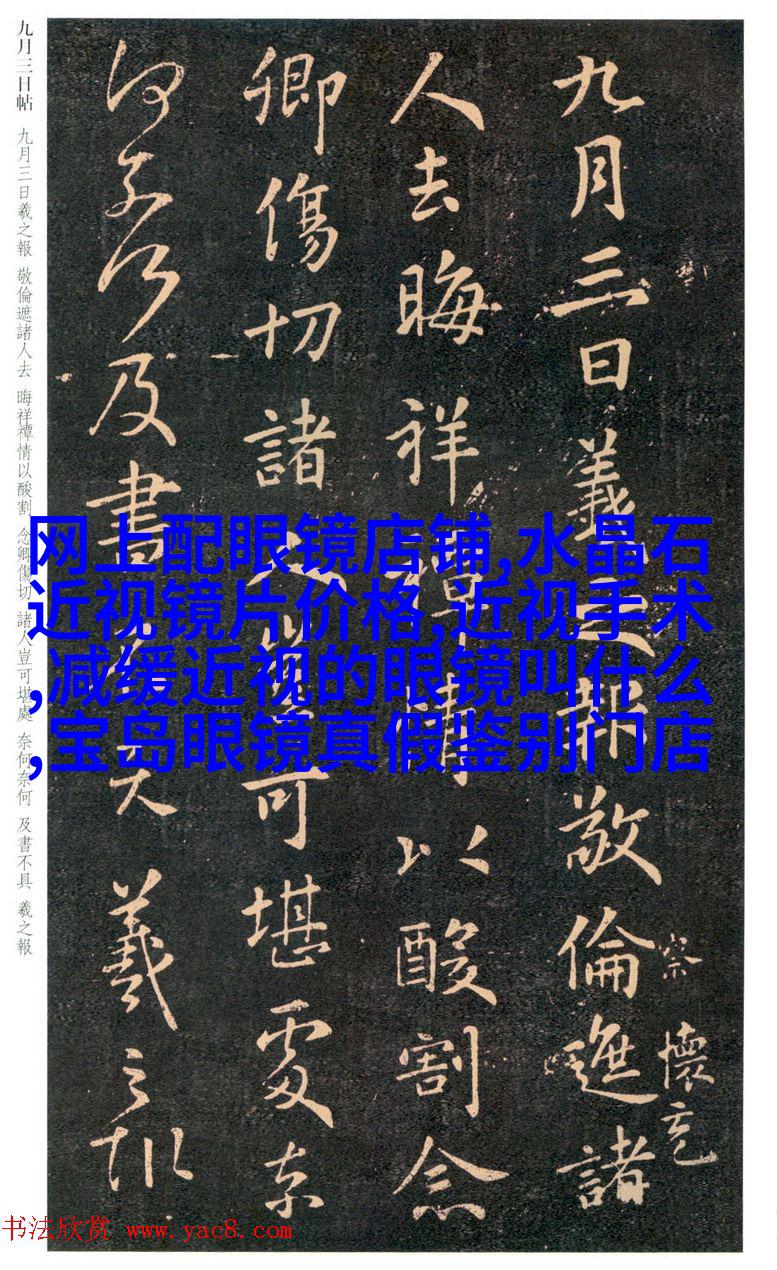 九月三日帖 九月三日羲之報 敬倫遮諸人去 晦祥禫情以酸割 念卿傷切 諸人豈可堪處 奈何奈何 及書不具 羲之報
九月三日羲之報敬倫遮諸
察 懷充
人去晦祥禫情以酸割念
卿傷切諸人豈可堪處奈
何奈何及書不具羲之報
网上配眼镜店铺,水晶石
近视镜片价格,近视手术
,减缓近视的眼镜叫什么
,宝岛眼镜真假鉴别门店
书法欣赏 www.yac8.com